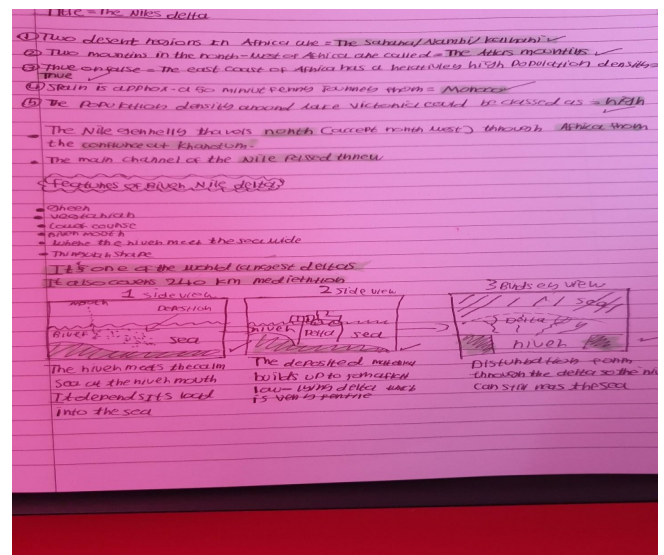 Title = The Niles delta
① Two desert regions in Africa are = The Sahara/Namibi/Kalhari ✓
② Two mountins in the north-west of Africa are called = The Atlas mountins ✓
③ True or false = The east coast of Africa has a heratively high Population density =
True ✓
④ Spain is approx - a 50 minute ferry Journey from = Morocco
⑤ The Population density around lake victoria could be classed as = high
• The Nile generelly travels north (accept north west) through Africa from
the confluence at Khartoum.
• The main channel of the Nile
Features of River Nile delta
• Green
• vegetation
• Lower course
• River mouth
• Where the river meet the sea wide
• Triangular shape
It's one of the world largest deltas
It also covers 240 km
1 side view
mouth Deposition
River sea
2 side view
river Delta sea
3 Birds ey view
sea
Delta
river
The river meets the calm
sea at the river mouth
It deposits its load
into the sea
The deposited
builds up to form a
low-lying delta which
is very fertile
Distributaries form
through the delta so the
can still reach the sea